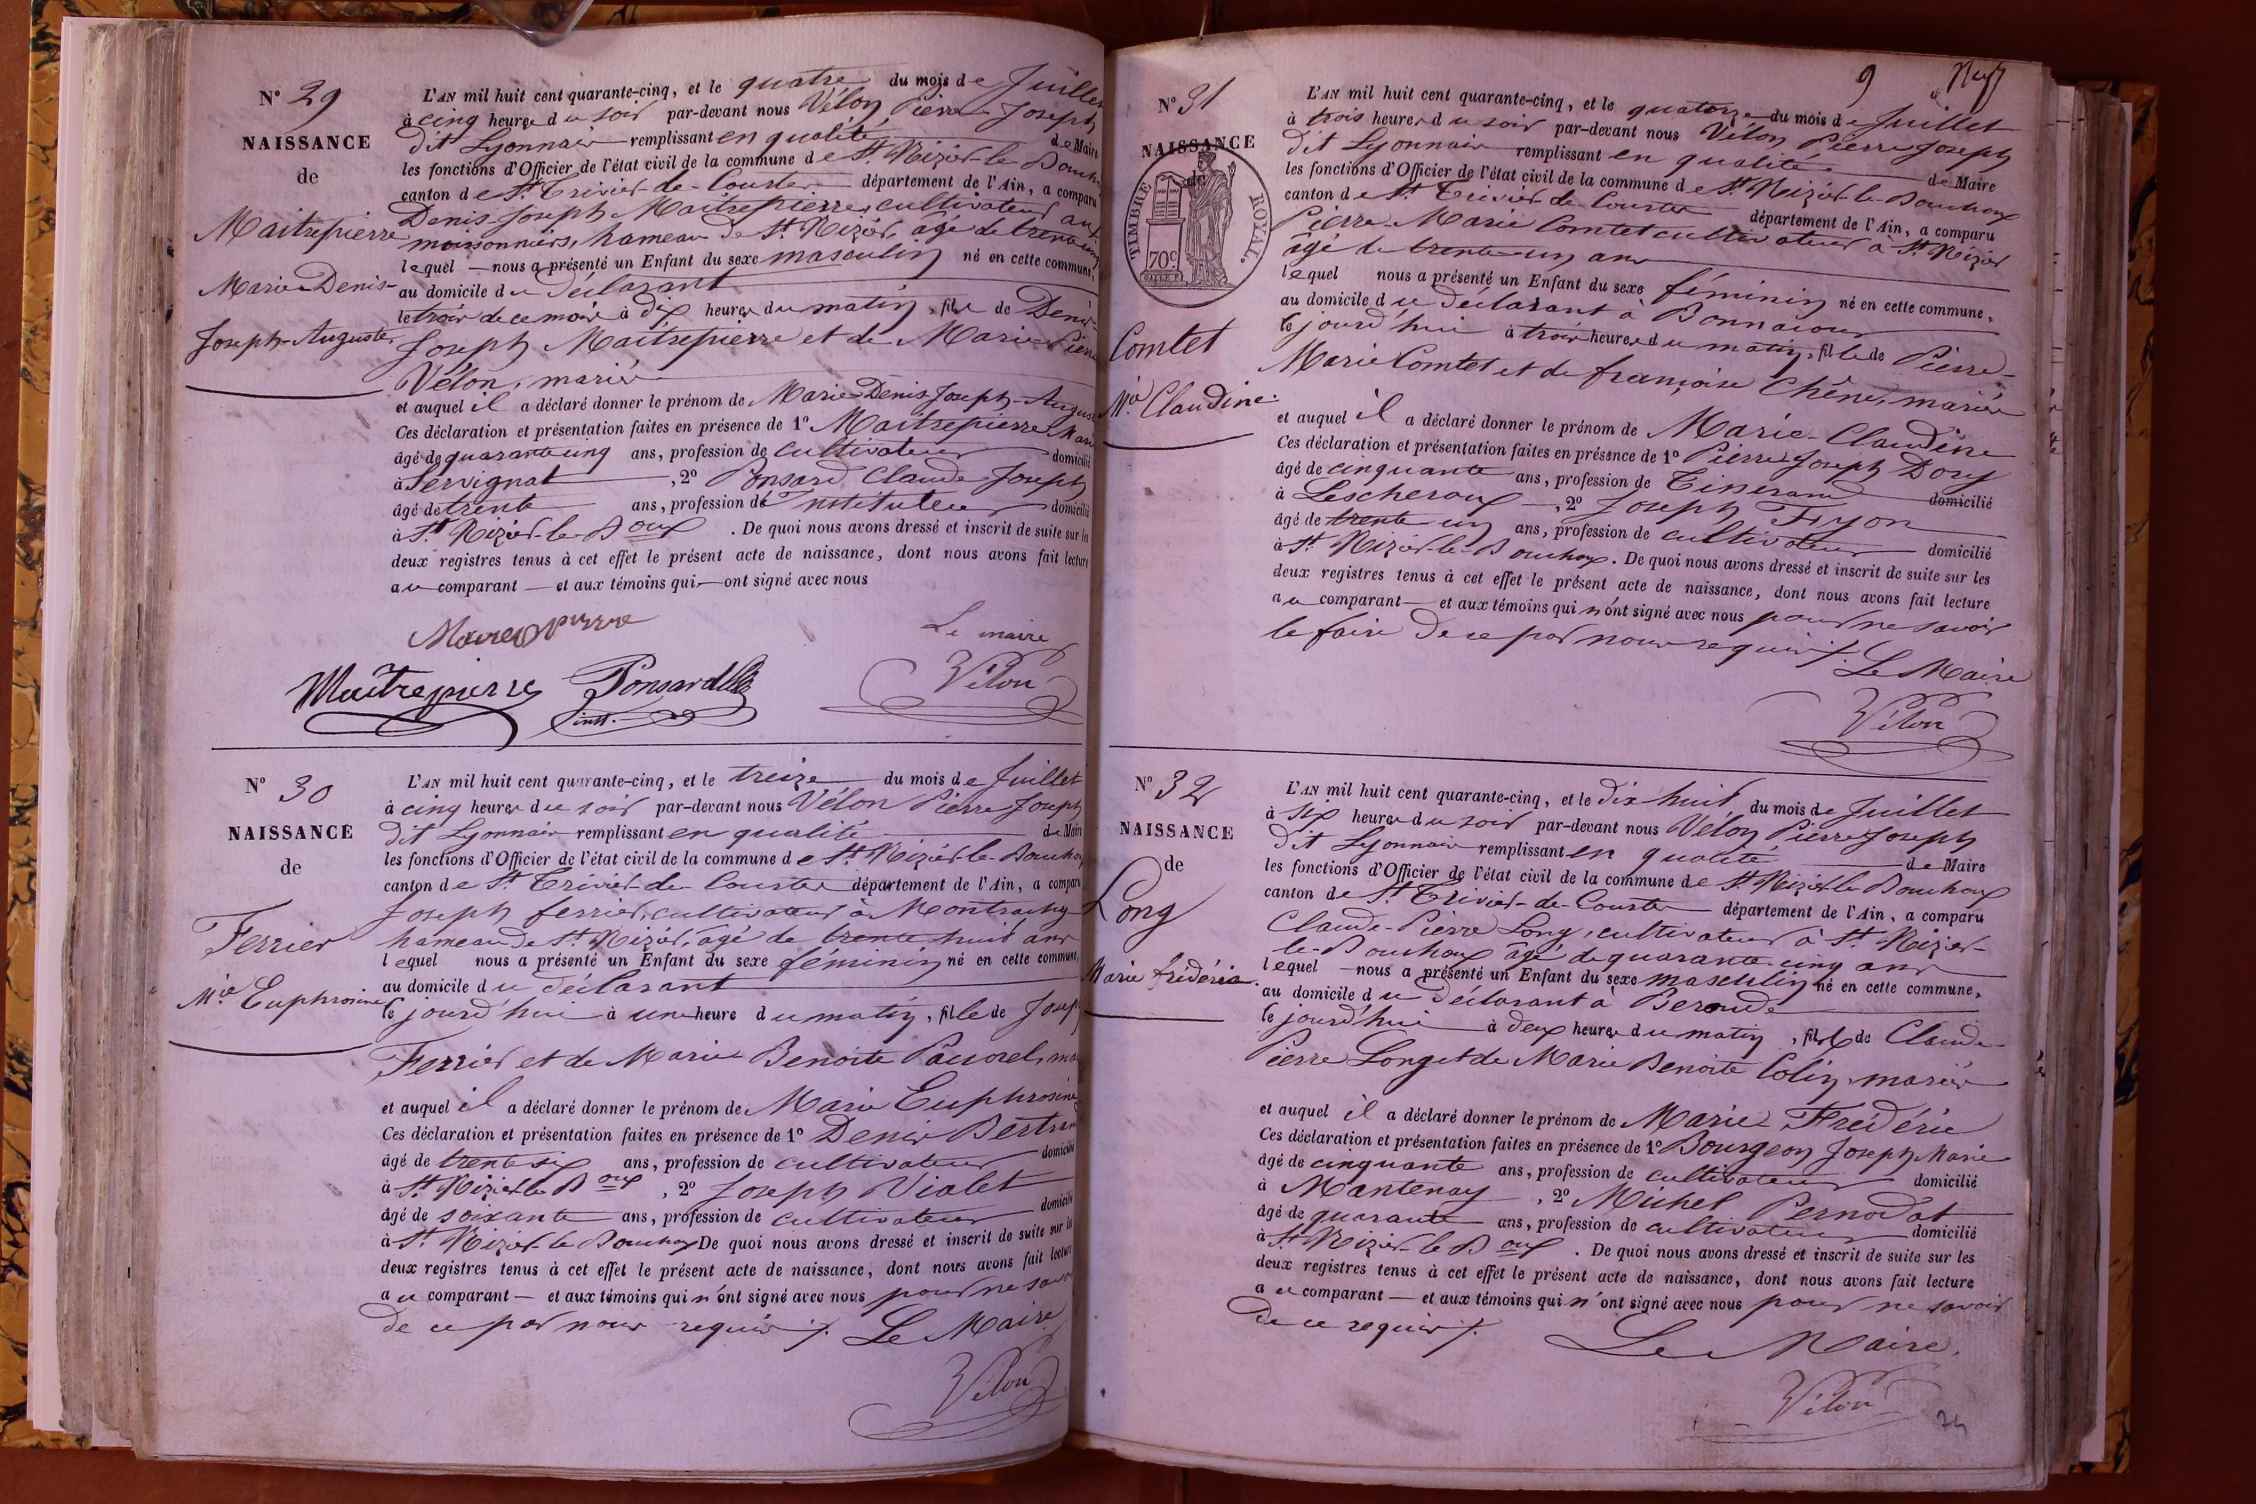 N° 29
NAISSANCE
de
Maitrepierre
Marie Denis-
Joseph-Auguste,
L'AN mil huit cent quarante-cinq, et le quatre du mois de Juillet
à cinq heures du soir par-devant nous Vélon Pierre Joseph
dit Lyonnais remplissant en qualité de Maire
les fonctions d'Officier de l'état civil de la commune de St. Nizier-le-Bouch
canton de St. Trivier-de-Courtes département de l'Ain, a comparu
Denis Joseph Maitrepierre, cultivateur aux
moissonniers, hameau de St. Nizier, âgé de trente cinq
lequel — nous a présenté un Enfant du sexe masculin né en cette commune,
au domicile du déclarant
le trois de ce mois à dix heures du matin, fils de Denis-
Joseph Maitrepierre et de Marie Pierre
Vélon, mariés
et auquel il a déclaré donner le prénom de Marie Denis Joseph-Auguste
Ces déclaration et présentation faites en présence de 1° Maitrepierre
âgé de quarante cinq ans, profession de cultivateur domicilié
à Servignat , 2° Ponsard Claude Joseph
âgé de trente ans, profession de Instituteur domicilié
à St. Nizier-le-Boux . De quoi nous avons dressé et inscrit de suite sur les
deux registres tenus à cet effet le présent acte de naissance, dont nous avons fait lecture
au comparant — et aux témoins qui — ont signé avec nous
Le maire
Maitrepierre Ponsard
inst.
Vélon
N° 30
NAISSANCE
de
Ferrier
Mie Euphrosine
L'AN mil huit cent quarante-cinq, et le treize du mois de Juillet
à cinq heures du soir par-devant nous Vélon Pierre Joseph
dit Lyonnais remplissant en qualité de Maire
les fonctions d'Officier de l'état civil de la commune de St. Nizier-le-Bouchoux
canton de St. Trivier-de-Courtes département de l'Ain, a comparu
Joseph ferrier, cultivateur à Montrachy
hameau de St. Nizier, âgé de trente huit ans
lequel nous a présenté un Enfant du sexe féminin né en cette commune,
au domicile du déclarant
le jourd'hui à une heure du matin, fille de Joseph
Ferrier et de Marie Benoite
et auquel il a déclaré donner le prénom de Marie Euphrosine
Ces déclaration et présentation faites en présence de 1° Denis Bertrand
âgé de trente six ans, profession de cultivateur domicilié
à St. Nizier le Boux , 2° Joseph Vialet
âgé de soixante ans, profession de cultivateur domicilié
à St. Nizier-le-Bouchoux De quoi nous avons dressé et inscrit de suite sur les
deux registres tenus à cet effet le présent acte de naissance, dont nous avons fait lecture
au comparant — et aux témoins qui n'ont signé avec nous pour ne savoir
de ce par nous requis ./. Le Maire
Vélon
9
N° 31
NAISSANCE
de
TIMBRE ROYAL.
70c
Comtet
Mie Claudine.
L'AN mil huit cent quarante-cinq, et le quatorze du mois de Juillet
à trois heures du soir par-devant nous Vélon Pierre Joseph
dit Lyonnais remplissant en qualité de Maire
les fonctions d'Officier de l'état civil de la commune de St. Nizier-le-Bouchoux
canton de St. Trivier de Courtes département de l'Ain, a comparu
Pierre-Marie Comtet cultivateur à St. Nizier
âgé de trente-un ans
lequel nous a présenté un Enfant du sexe féminin né en cette commune,
au domicile du déclarant à
le jourd'hui à trois heures du matin, fille de Pierre-
Marie Comtet et de françoise Chêne, mariés
et auquel il a déclaré donner le prénom de Marie-Claudine
Ces déclaration et présentation faites en présence de 1° Pierre Joseph Dory
âgé de cinquante ans, profession de Tisserand domicilié
à Lescheroux , 2° Joseph Fyon
âgé de trente un ans, profession de cultivateur domicilié
à St. Nizier-le-Bouchoux. De quoi nous avons dressé et inscrit de suite sur les
deux registres tenus à cet effet le présent acte de naissance, dont nous avons fait lecture
au comparant — et aux témoins qui n'ont signé avec nous pour ne savoir
le faire de ce par nous requis ./. Le Maire
Vélon
N° 32
NAISSANCE
de
Long
Marie frédéric.
L'AN mil huit cent quarante-cinq, et le dix huit du mois de Juillet
à six heures du soir par-devant nous Vélon Pierre Joseph
dit Lyonnais remplissant en qualité de Maire
les fonctions d'Officier de l'état civil de la commune de St. Nizier-le-Bouchoux
canton de St. Trivier-de-Courtes département de l'Ain, a comparu
Claude-Pierre Long, cultivateur à St. Nizier-
le-Bouchoux âgé de quarante cinq ans
lequel — nous a présenté un Enfant du sexe masculin né en cette commune,
au domicile du déclarant à
le jourd'hui à deux heures du matin, fils de Claude-
Pierre Long et de Marie Benoite Colin, mariés
et auquel il a déclaré donner le prénom de Marie Frédéric
Ces déclaration et présentation faites en présence de 1° Bourgeon Joseph Marie
âgé de cinquante ans, profession de cultivateur domicilié
à Mantenay , 2° Michel Pernodat
âgé de quarante ans, profession de cultivateur domicilié
à St. Nizier-le Boux . De quoi nous avons dressé et inscrit de suite sur les
deux registres tenus à cet effet le présent acte de naissance, dont nous avons fait lecture
au comparant — et aux témoins qui n'ont signé avec nous pour ne savoir
de ce requis ./. Le Maire.
Vélon